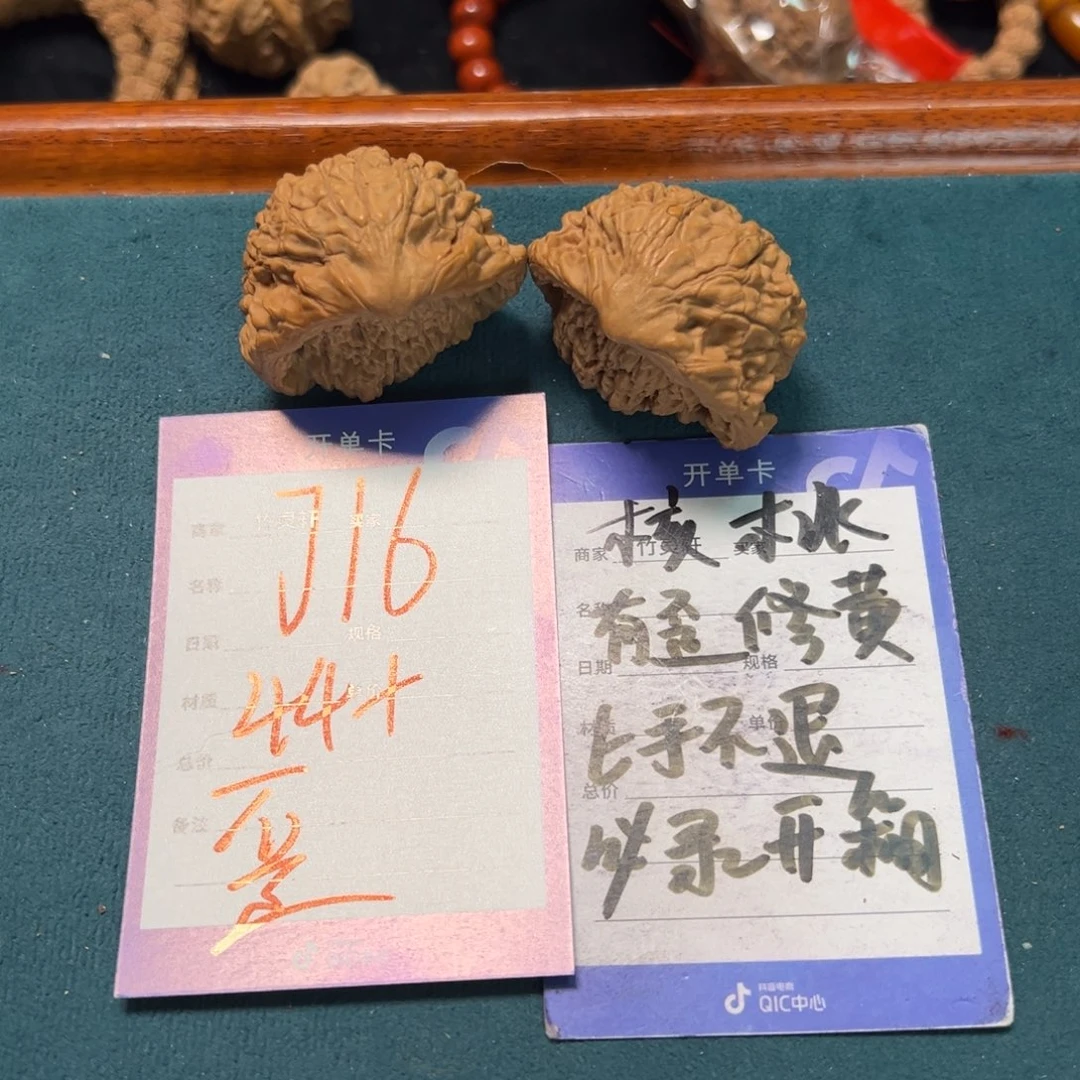 开单卡
J16
商家 竹灵轩 买家
名称
日期 规格
44+
材质 单价
总价
备注
开单卡
核桃
商家 竹灵轩 买家
有歪修黄
名称
日期 规格
上手不退
材质 单价
总价
必录开箱
抖音电商
QIC中心